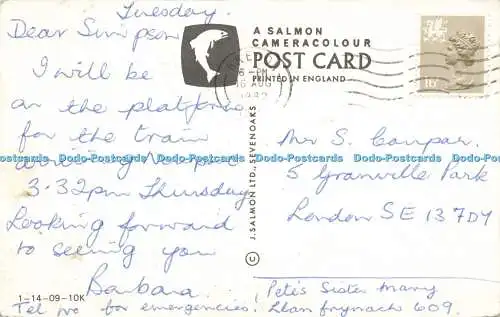 Tuesday.
Dear Simpson
I will be
on the platform
for the train
arriving
3.32pm Thursday
Looking forward
to seeing you
Barbara.
1-14-09-10K
Tel no for emergencies.
A SALMON
CAMERACOLOUR
POST CARD
PRINTED IN ENGLAND
J. SALMON LTD., SEVENOAKS
©
5-PM
16 AUG
16
Mr S. Coupar
5 Granville Park
London SE 13 7DY
Pete's Sister Mary
Llanfrynach 609.
Dodo-Postcards Dodo-Postcards Dodo-Postcards Dodo-Postcards Dodo-Postcards Dodo-Postcards Dodo-Postcards